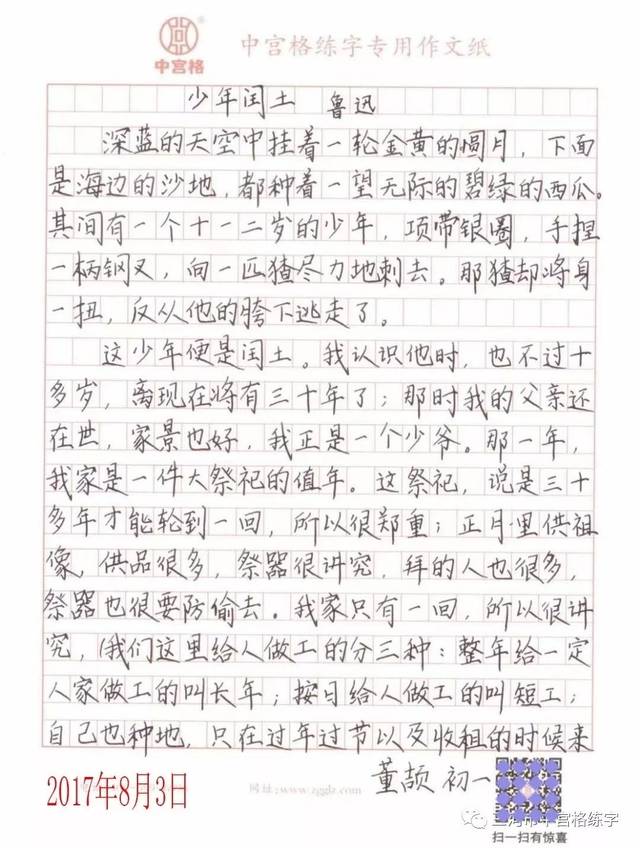 中宫格
中宫格练字专用作文纸
少年闰土 鲁迅
深蓝的天空中挂着一轮金黄的圆月，下面
是海边的沙地，都种着一望无际的碧绿的西瓜。
其间有一个十一二岁的少年，项带银圈，手捏
一柄钢叉，向一匹猹尽力地刺去。那猹却将身
一扭，反从他的胯下逃走了。
这少年便是闰土。我认识他时，也不过十
多岁，离现在将有三十年了；那时我的父亲还
在世，家景也好，我正是一个少爷。那一年，
我家是一件大祭祀的值年。这祭祀，说是三十
多年才能轮到一回，所以很郑重；正月里供祖
像，供品很多，祭器很讲究，拜的人也很多，
祭器也很要防偷去。我家只有一回，所以很讲
究，(我们这里给人做工的分三种：整年给一定
人家做工的叫长年；按日给人做工的叫短工；
自己也种地，只在过年过节以及收租的时候来
董颉 初一
2017年8月3日
网址:www.zgglz.com
三河市中宫格练字
扫一扫有惊喜